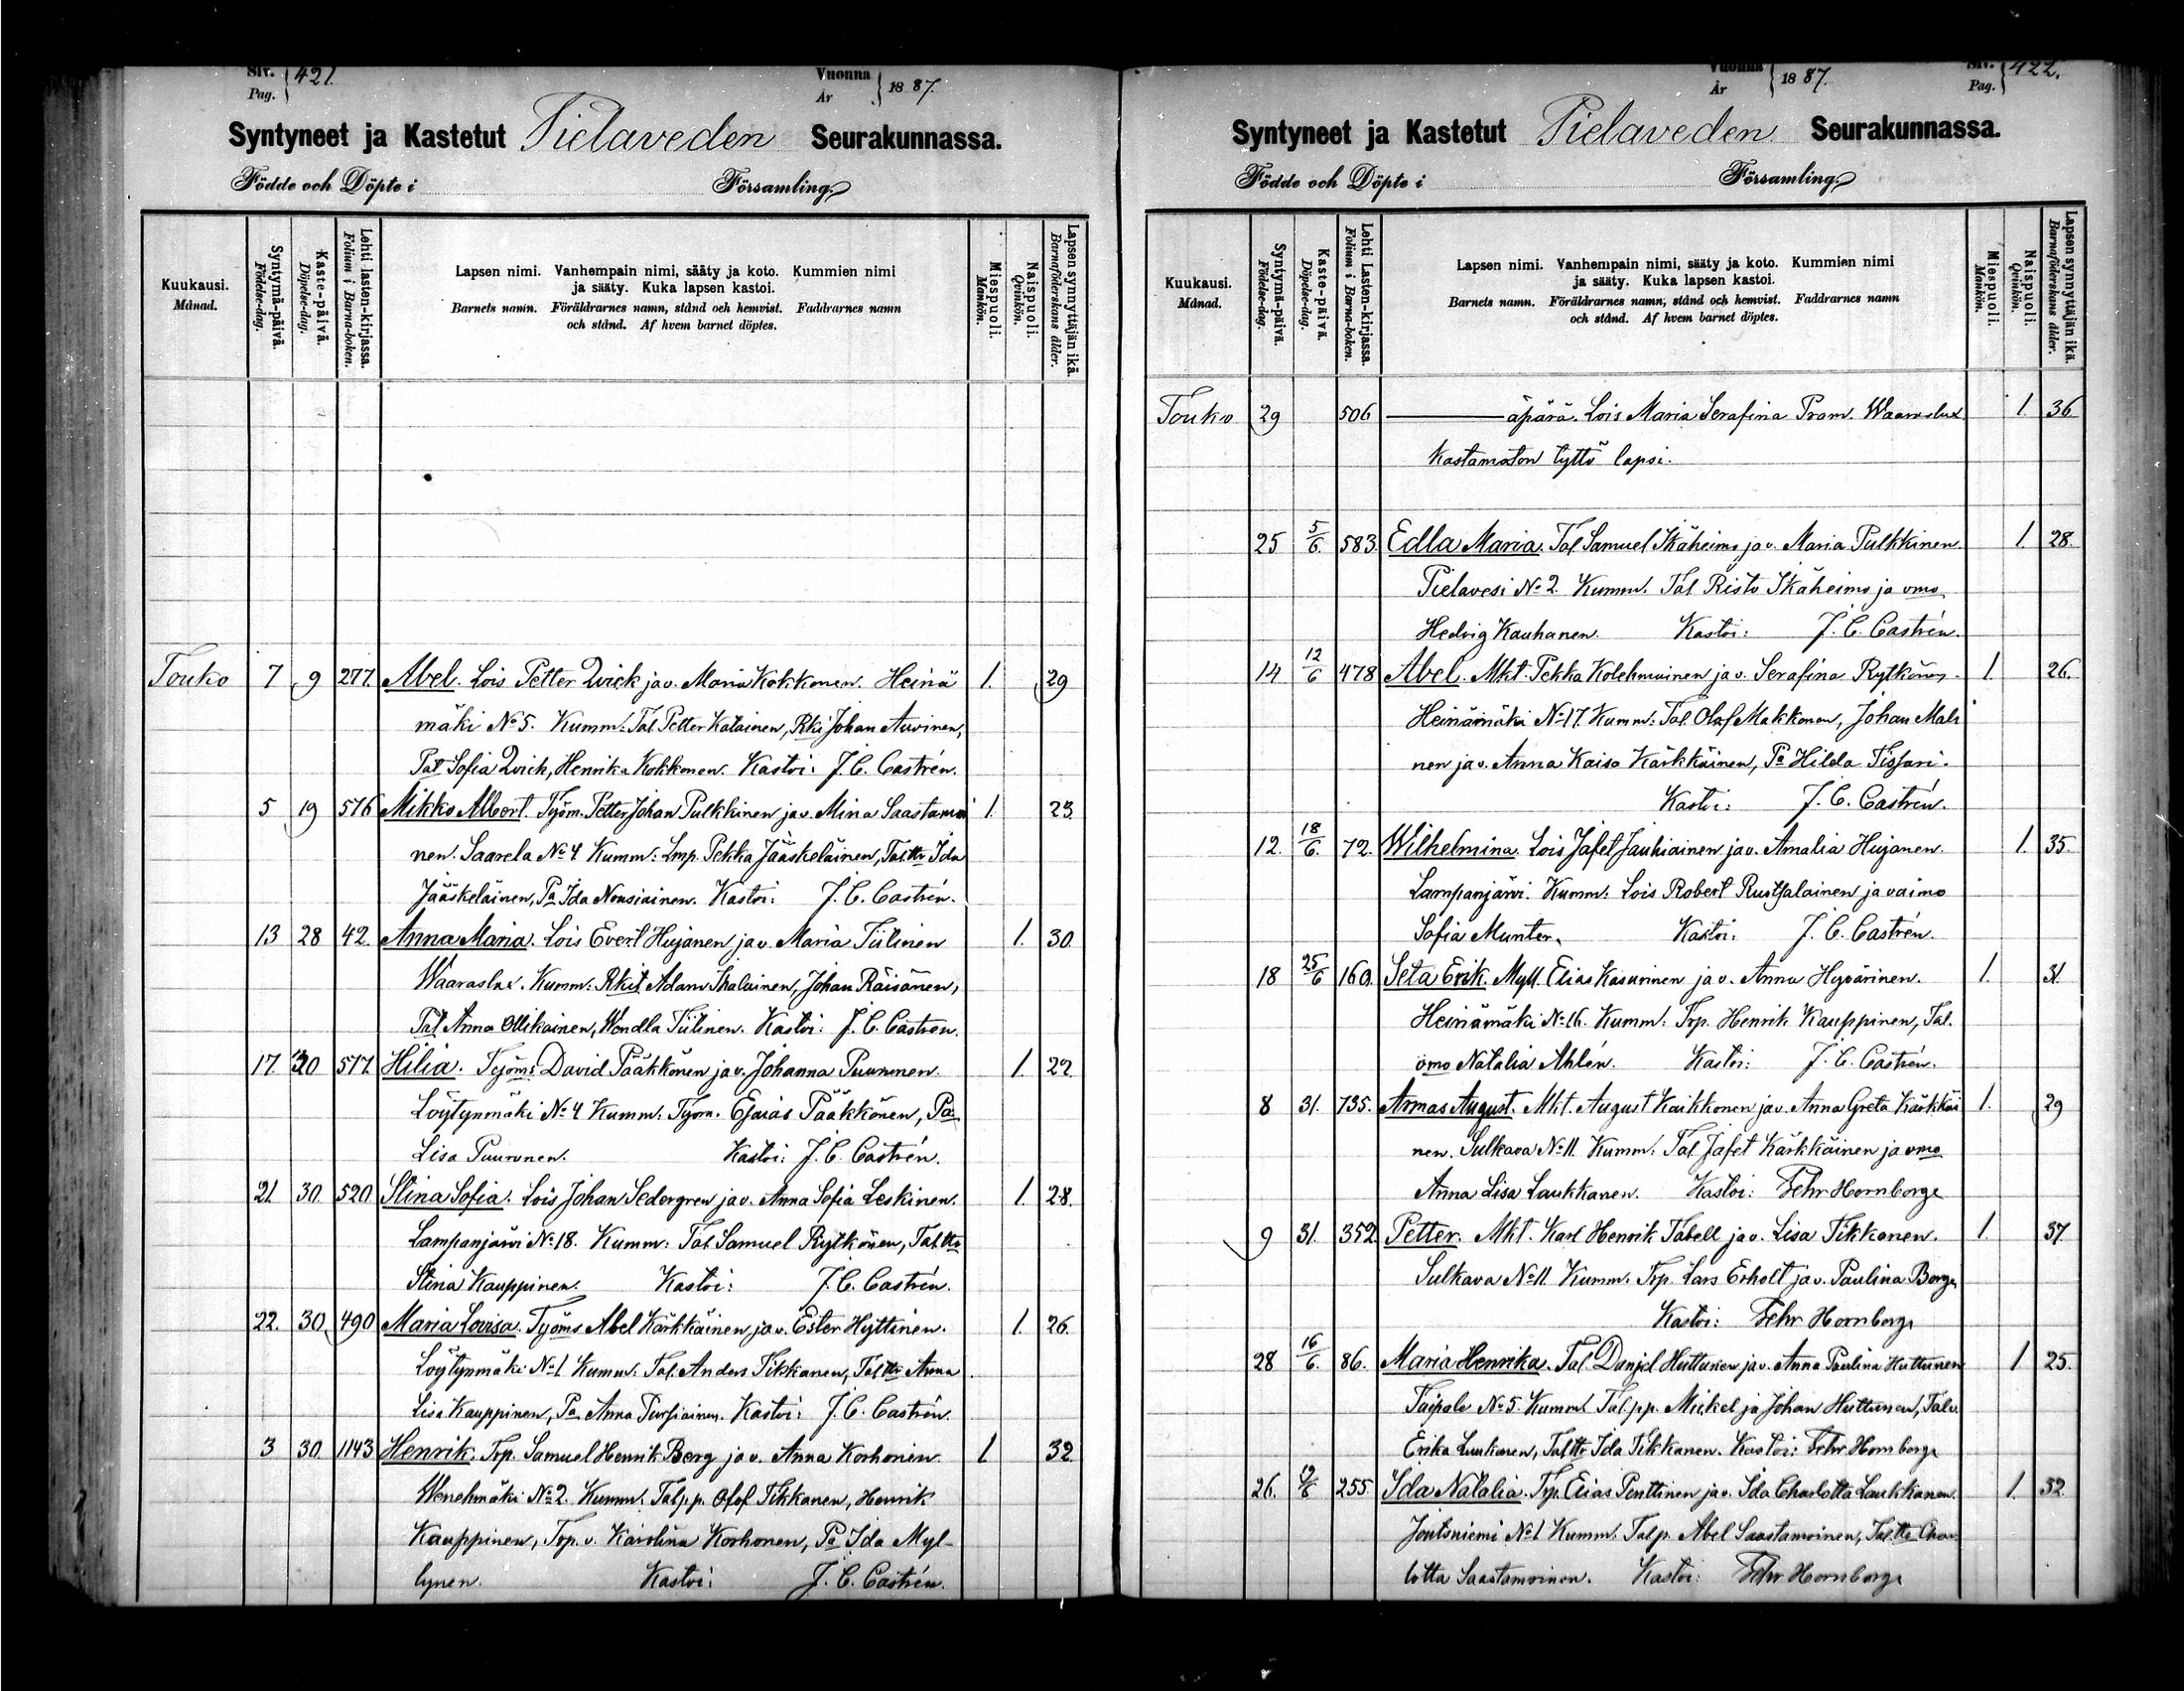 Siv. 421.
Pag.
Vuonna 1887.
År
Syntyneet ja Kastetut Pielaveden Seurakunnassa.
Födde och Döpte i Församling.
Kuukausi. Månad.
Syntymä-päivä. Födelse-dag.
Kaste-päivä. Döpelse-dag.
Lehti lasten-kirjassa. Folium i Barna-boken.
Lapsen nimi. Vanhempain nimi, sääty ja koto. Kummien nimi
ja sääty. Kuka lapsen kastoi.
Barnets namn. Föräldrarnes namn, stånd och hemvist. Faddrarnes namn
och stånd. Af hvem barnet döptes.
Miespuoli. Mankön.
Naispuoli. Qvinkön.
Lapsen synnyttäjän ikä. Barnaföderskans ålder.
Touko 7 9 277. Abel. Lois Petter Qvick ja v. Maria Kokkonen. Heinä 1. 29
mäki No 5. Kumm: Tal. Petter Katainen, Rki Johan Auvinen,
Pat Sofia Qvick, Henrika Kokkonen. Kastoi: J. C. Castrén.
5 19 576 Mikko Albert. Työm. Petter Johan Pulkkinen ja v. Mina Saastamoi 1. 23
nen. Saarela No 4 Kumm: Lmp. Pekka Jääskeläinen, Tal.ttr Ida
Jääskeläinen, Pa Ida Nousiainen. Kastoi: J. C. Castrén.
13 28 42. Anna Maria. Lois Evert Hujanen ja v. Maria Tiilinen 1. 30.
Waaraslax. Kumm: Rkit Adam Ihalainen, Johan Räisänen,
Pat Anna Ollikainen, Wendla Tiilinen. Kastoi: J. C. Castrén.
17. 30 517. Hilia. Työms David Pääkkönen ja v. Johanna Puurunen. 1. 22.
Löytynmäki No 4 Kumm: Työm. Esaias Pääkkönen, Pa
Lisa Puurunen. Kastoi: J. C. Castrén.
21. 30. 520. Stina Sofia. Lois Johan Sedergren ja v. Anna Sofia Leskinen. 1. 28.
Lampanjärvi No 18. Kumm: Tal. Samuel Rytkönen, Tal.ttr
Stina Kauppinen. Kastoi: J. C. Castrén.
22. 30. 490 Maria Lovisa. Työms Abel Kärkkäinen ja v. Ester Hyttinen. 1. 26.
Löytynmäki No 1 Kumm: Tal. Anders Tikkanen, Tal.ttr Anna
Lisa Kauppinen, Pa Anna Pursiainen. Kastoi: J. C. Castrén.
3 30 1143 Henrik. Trp. Samuel Henrik Berg ja v. Anna Korhonen. 1 32
Wenehmäki No 2. Kumm: Tal.p.p. Olof Tikkanen, Henrik
Kauppinen, Trp. v. Karolina Korhonen, Pa Ida Myl-
lynen. Kastoi: J. C. Castrén.
Vuonna 1887.
År
Siv. 422.
Pag.
Syntyneet ja Kastetut Pielaveden Seurakunnassa.
Födde och Döpte i Församling.
Kuukausi. Månad.
Syntymä-päivä. Födelse-dag.
Kaste-päivä. Döpelse-dag.
Lehti Lasten-kirjassa. Folium i Barna-boken.
Lapsen nimi. Vanhempain nimi, sääty ja koto. Kummien nimi
ja sääty. Kuka lapsen kastoi.
Barnets namn. Föräldrarnes namn, stånd och hemvist. Faddrarnes namn
och stånd. Af hvem barnet döptes.
Miespuoli. Mankön.
Naispuoli. Qvinkön.
Lapsen synnyttäjän ikä. Barnaföderskans ålder.
Touko 29 506 äpärä. Lois Maria Serafina Waaraslax 1. 36
Kastamaton tyttö lapsi.
25 5/6. 583. Edla Maria. Tal Samuel Ikäheimo ja v. Maria Pulkkinen. 1. 28.
Pielavesi No 2. Kumm. Tal. Risto Ikäheimo ja vmo
Hedvig Kauhanen. Kastoi: J. C. Castrén.
14 12/6 478 Abel. Mkt. Pekka Kolehmainen ja v. Serafina Rytkönen. 1. 26.
Heinämäki No 17. Kumm: Tal. Olof Makkonen, Johan Mali
nen ja v. Anna Kaisa Kärkkäinen, Pa Hilda Tissari.
Kastoi: J. C. Castrén.
12. 18/6. 72. Wilhelmina. Lois Jafet Jauhiainen ja v. Amalia Hujanen. 1. 35.
Lampanjärvi. Kumm: Lois Robert Ruotsalainen ja vaimo
Sofia Munter. Kastoi: J. C. Castrén.
18 25/6 160. Seta Erik. Myll. Elias Kasurinen ja v. Anna Hyvärinen. 1. 31.
Heinämäki No 16. Kumm: Trp. Henrik Kauppinen, Tal.
vmo Natalia Ahlén. Kastoi: J. C. Castrén.
8 31. 735. Armas August. Mkt. August Kaikkonen ja v. Anna Greta Kärkkäi 1. 29
nen. Sulkava No 11. Kumm: Tal Jafet Kärkkäinen ja vmo
Anna Lisa Laukkanen. Kastoi: Fehr Hornborg
9 31. 352 Petter. Mkt. Karl Henrik Tabell ja v. Lisa Tikkanen. 1. 37.
Sulkava No 11 Kumm. Trp. Lars Erholt ja v. Paulina Borg
Kastoi: Fehr Hornborg
28 16/6. 86. Maria Henrika. Tal. Danjel Huttunen ja v. Anna Paulina Huttunen 1 25.
Taipale No 5. Kumm. Tal.pp. Mickel ja Johan Huttunen, Tal.v.
Erika Luukonen, Tal.ttr Ida Tikkanen. Kastoi: Fehr Hornborg
26. 255. Ida Natalia. Trp. Elias Penttinen ja v. Ida Charlotta Laukkanen. 1. 32.
Joutsniemi No 1 Kumm. Tal.p. Abel Saastamoinen, Tal.ttr Char
lotta Saastamoinen. Kastoi: Fehr Hornborg